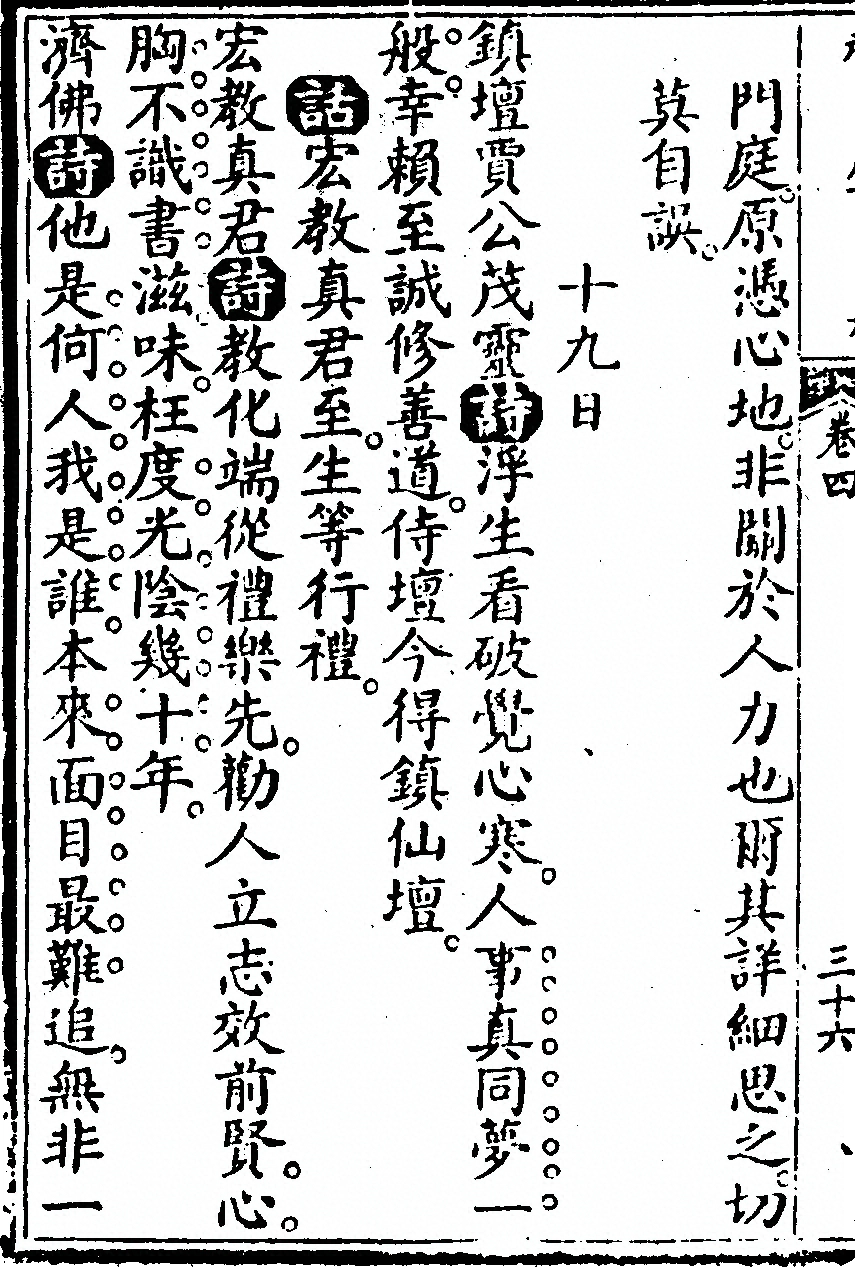 卷四
三十六
門庭。原憑心地。非關於人力也爾其詳細思之。切
莫自誤。
十九日
鎮壇賈公茂靈詩浮生看破覺心寒。人事真同夢一
般。幸賴至誠修善道。侍壇今得鎮仙壇。
話宏教真君至。生等行禮。
宏教真君詩教化端從禮樂先。勸人立志效前賢。心。
胸不識書滋味。枉度光陰幾十年。
濟佛詩他是何人我是誰。本來面目最難追。無非一